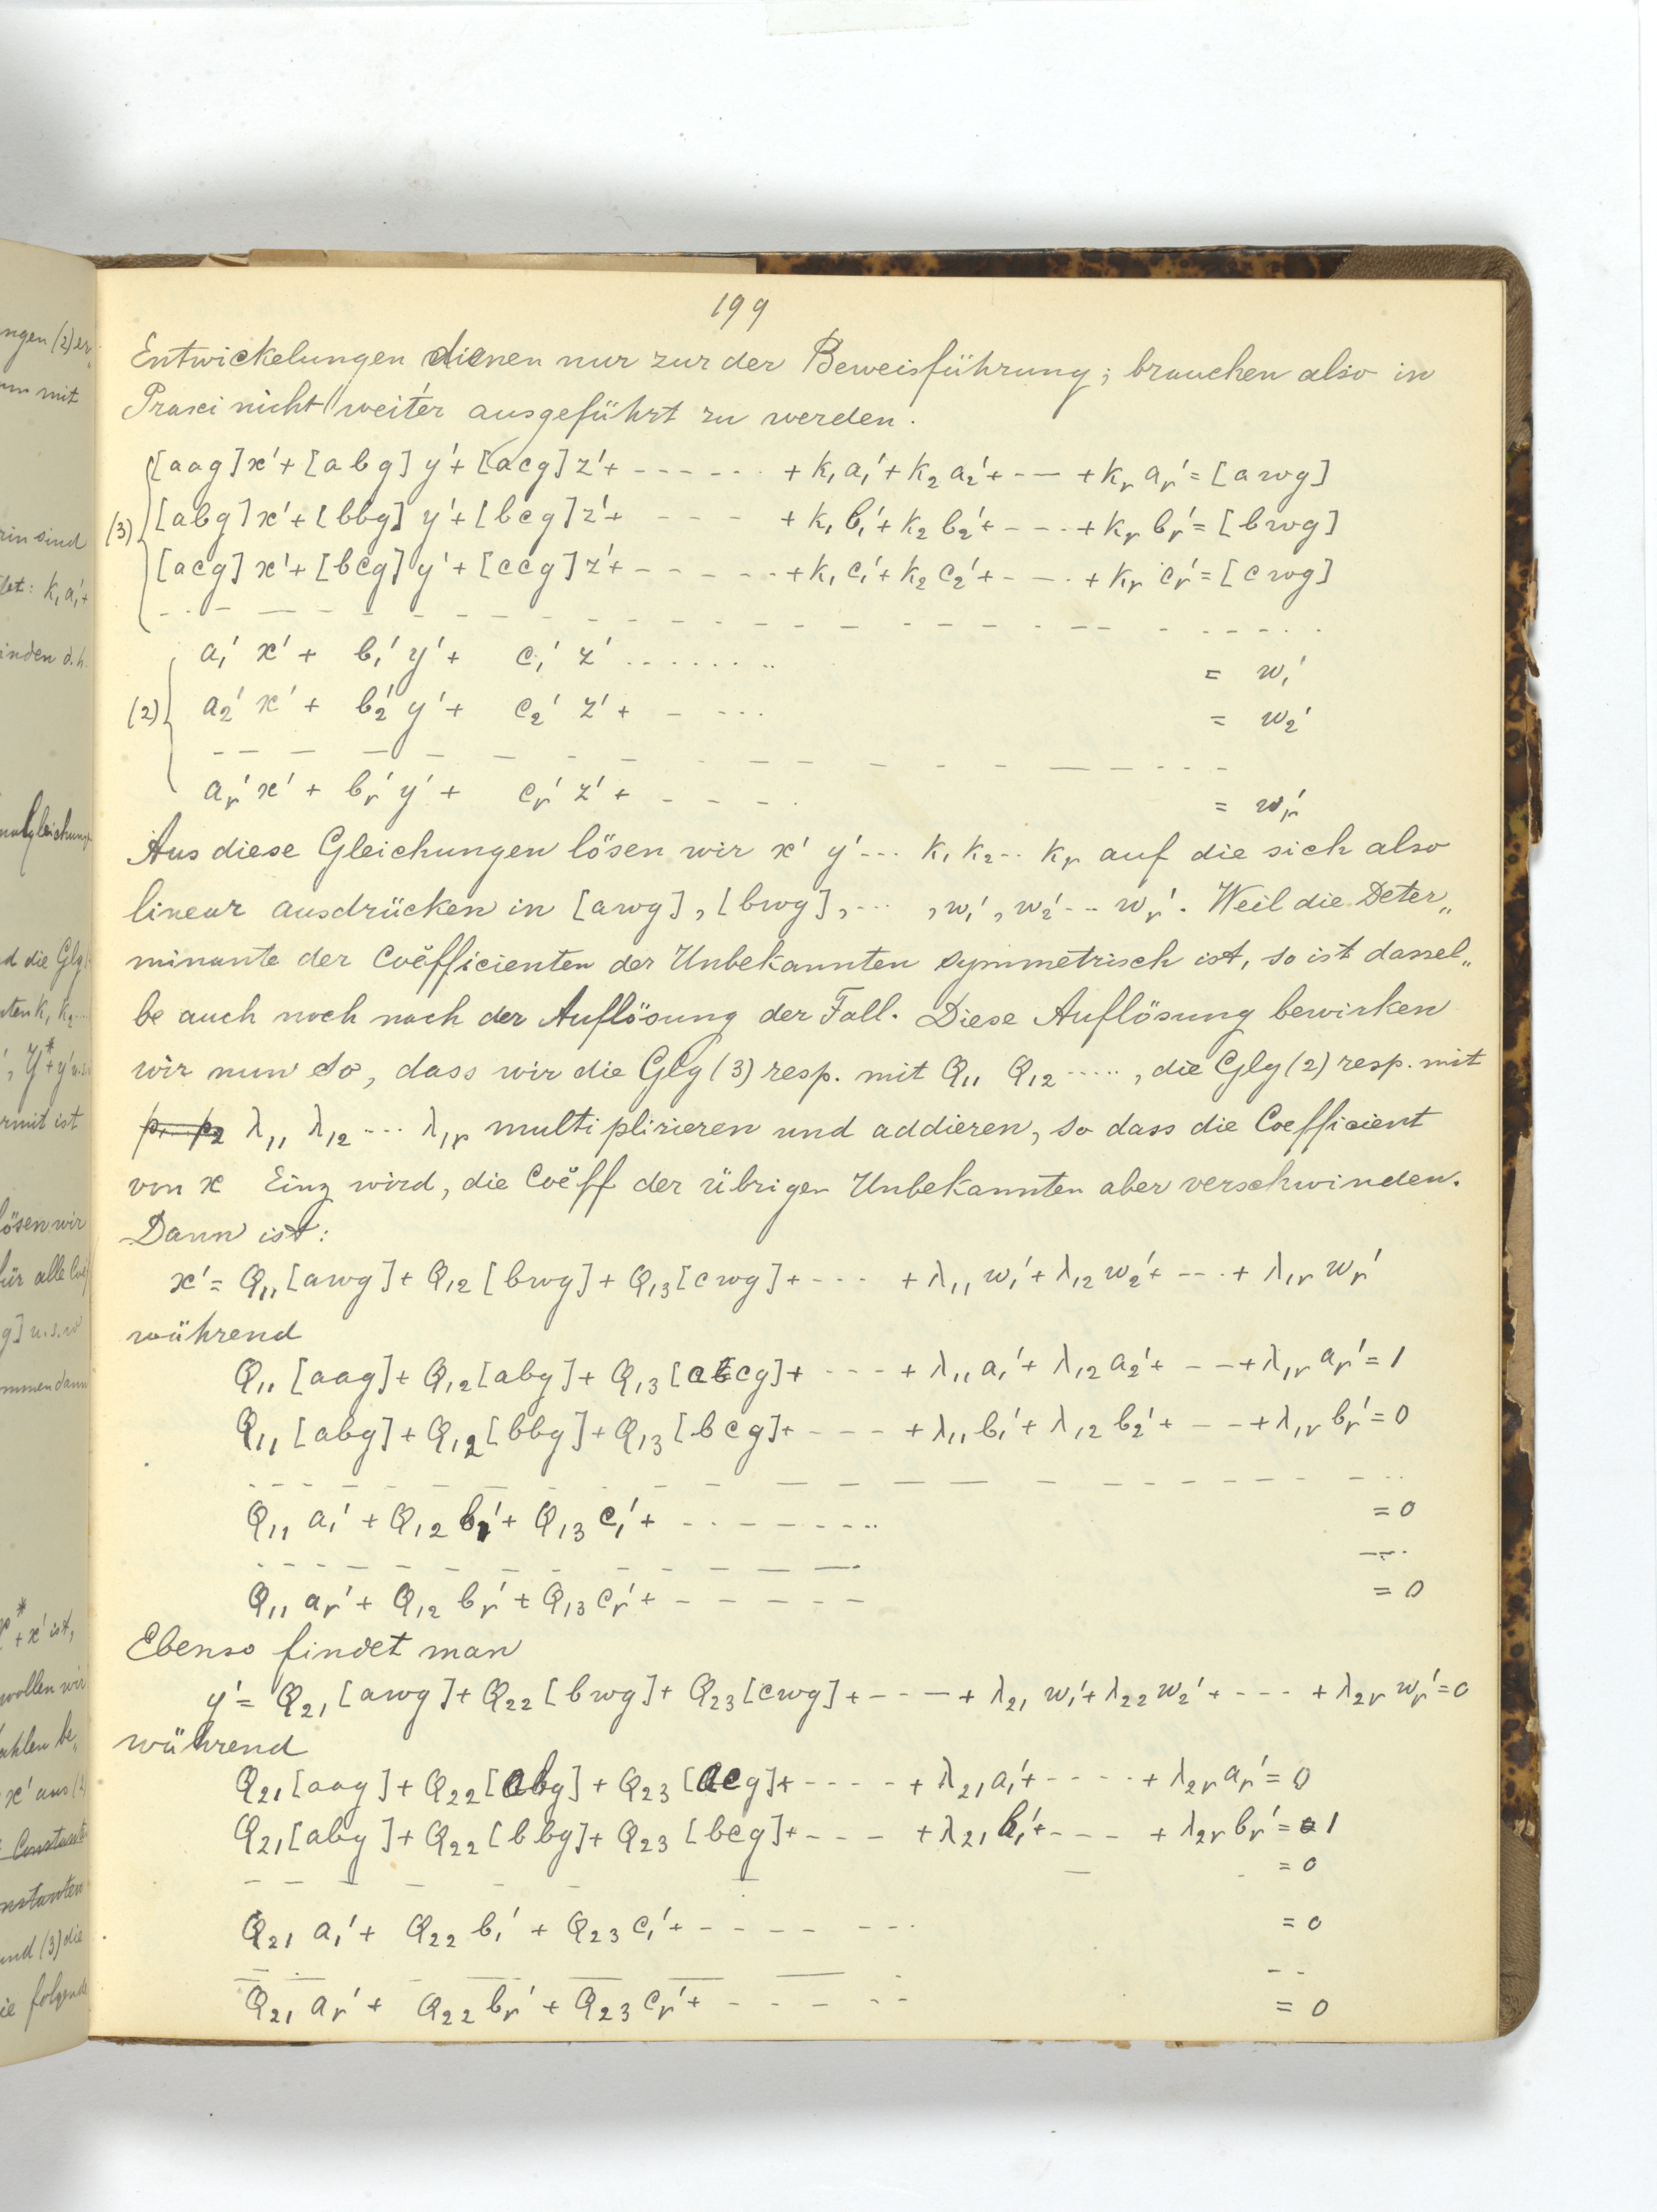 199
Entwickelungen dienen nur zur der Beweisführung; brauchen also in
Praxi nicht weiter ausgeführt zu werden.
[aag]x'+[abg]y'+[acg]z'+ - - - - - - +k₁a₁'+k₂a₂'+ - - +kᵣaᵣ'=[awg]
(3) [abg]x'+[bbg]y'+[bcg]z'+ - - - - +k₁b₁'+k₂b₂'+ - - - +kᵣbᵣ'=[bwg]
[acg]x'+[bcg]y'+[ccg]z'+ - - - - - +k₁c₁'+k₂c₂'+ - - - +kᵣcᵣ'=[cwg]
- - - - - - - - - - - - - - - - - - - -
a₁'x'+ b₁'y'+ c₁'z' ........ = w₁'
(2) a₂'x'+ b₂'y'+ c₂'z'+ - - - - = w₂'
- - - - - - - - - - - - - - - - - -
aᵣ'x'+ bᵣ'y'+ cᵣ'z'+ - - - - = wᵣ'
Aus diese Gleichungen lösen wir x' y' --- k₁ k₂ -- kᵣ auf die sich also
linear ausdrücken in [awg], [bwg], --- , w₁', w₂' --- wᵣ'. Weil die Deter„
minante der Coëfficienten der Unbekannten symmetrisch ist, so ist dassel„
be auch noch nach der Auflösung der Fall. Diese Auflösung bewirken
wir nun so, dass wir die Glg (3) resp. mit Q₁₁ Q₁₂ ....., die Glg (2) resp. mit
λ₁₁ λ₁₂ --- λ₁ᵣ multiplizieren und addieren, so dass die Coefficient
von x Einz wird, die Coëff der übrigen Unbekannten aber verschwinden.
Dann ist:
x'= Q₁₁[awg]+Q₁₂[bwg]+Q₁₃[cwg]+ - - - +λ₁₁w₁'+λ₁₂w₂'+ - - - +λ₁ᵣwᵣ'
während
Q₁₁[aag]+Q₁₂[abg]+Q₁₃[acg]+ - - - +λ₁₁a₁'+λ₁₂a₂'+ - - +λ₁ᵣaᵣ'=1
Q₁₁[abg]+Q₁₂[bbg]+Q₁₃[bcg]+ - - - +λ₁₁b₁'+λ₁₂b₂'+ - - +λ₁ᵣbᵣ'=0
- - - - - - - - - - - - - - - - - - - -
Q₁₁a₁'+Q₁₂b₁'+Q₁₃c₁'+ - - - - - - - =0
- - - - - - - - - - - - - -
Q₁₁aᵣ'+Q₁₂bᵣ'+Q₁₃cᵣ'+ - - - - - =0
Ebenso findet man
y'= Q₂₁[awg]+Q₂₂[bwg]+Q₂₃[cwg]+ - - - +λ₂₁w₁'+λ₂₂w₂'+ - - - +λ₂ᵣwᵣ'=0
während
Q₂₁[aag]+Q₂₂[abg]+Q₂₃[acg]+ - - - - +λ₂₁a₁'+ - - - - +λ₂ᵣaᵣ'=0
Q₂₁[abg]+Q₂₂[bbg]+Q₂₃[bcg]+ - - - +λ₂₁b₁'+ - - - +λ₂ᵣbᵣ'=1
- - - - - - - - - =0
Q₂₁a₁'+ Q₂₂b₁'+Q₂₃c₁'+ - - - - - - - =0
- - - - - - - - - -
Q₂₁aᵣ'+ Q₂₂bᵣ'+Q₂₃cᵣ'+ - - - - - =0